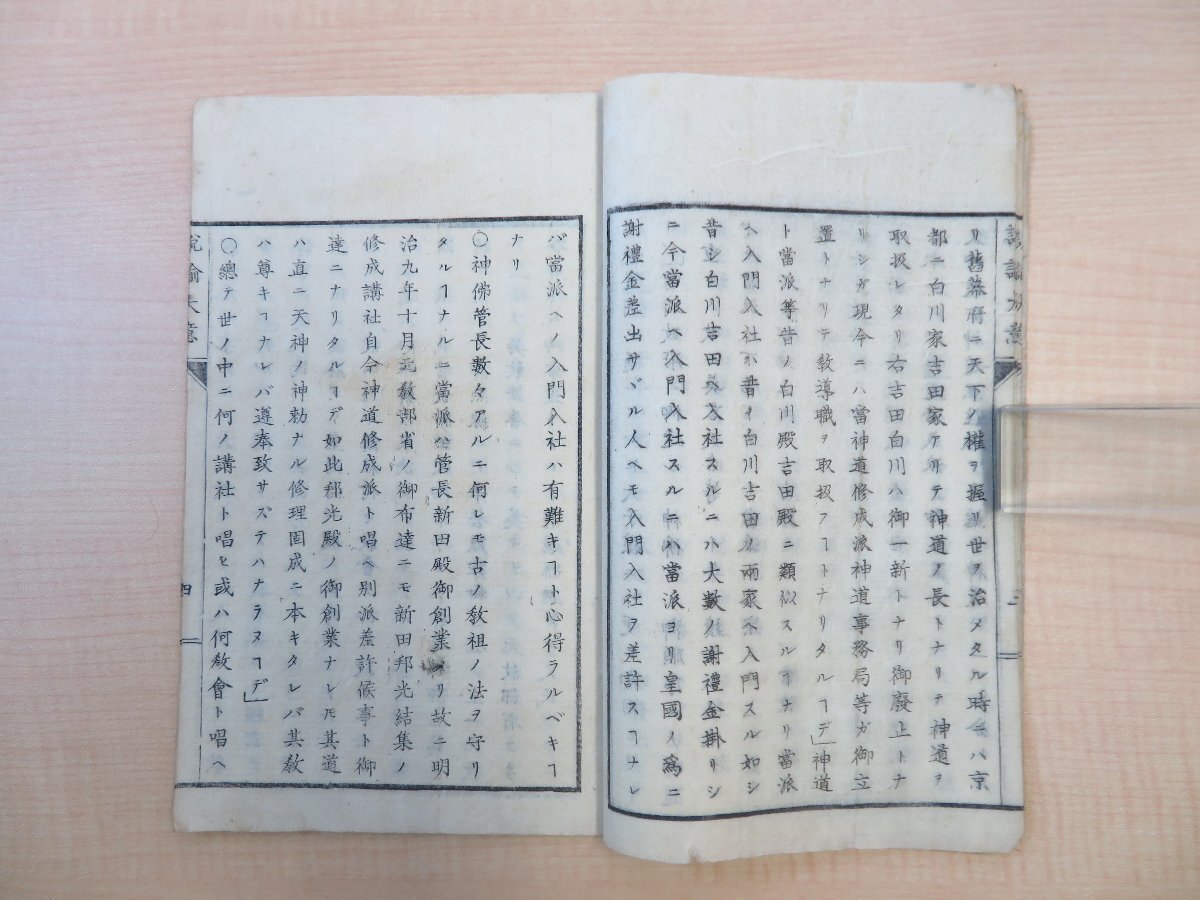 リ舊幕府ニ天下ノ權ヲ握リ世ヲ治メタル時ニハ京
都ニ白川家吉田家アリテ神道ノ長トナリテ神道ヲ
取扱レタリ右吉田白川ハ御一新トナリ御廢止トナ
リシガ現今ニハ當神道修成派神道事務局等ガ御立
置トナリテ敎導職ヲ取扱フヿトナリタルヿデ」神道
ト當派等昔ノ白川殿吉田殿ニ類似スルヿナリ當派
ヘ入門入社ハ昔イ白川吉田ノ兩家ヘ入門スル如シ
昔シ白川吉田ヘ入社スルニハ大數ノ謝禮金掛リシ
ニ今當派ヘ入門入社スルニハ當派ヨリ皇國ノ爲ニ
謝禮金差出サバル人ヘモ入門入社ヲ差許スヿナレ
三
バ當派ヘノ入門入社ハ有難キヿト心得ラルベキヿ
ナリ
〇神佛管長數々アルニ何レモ古ノ敎祖ノ法ヲ守リ
タルヿナルニ當派ハ管長新田殿御創業ナリ故ニ明
治九年十月元敎部省ノ御布達ニモ新田邦光結集ノ
修成講社自今神道修成派ト唱ヘ別派差許候事ト御
達ニナリタルヿデ如此邦光殿ノ御創業ナレモ其道
ハ直ニ天神ノ神勅ナル修理固成ニ本キタレバ其敎
ハ尊キヿナレバ遵奉致サズテハナラヌヿデ」
〇總テ世ノ中ニ何ノ講社ト唱ヒ或ハ何敎會ト唱ヘ
說諭大意
四